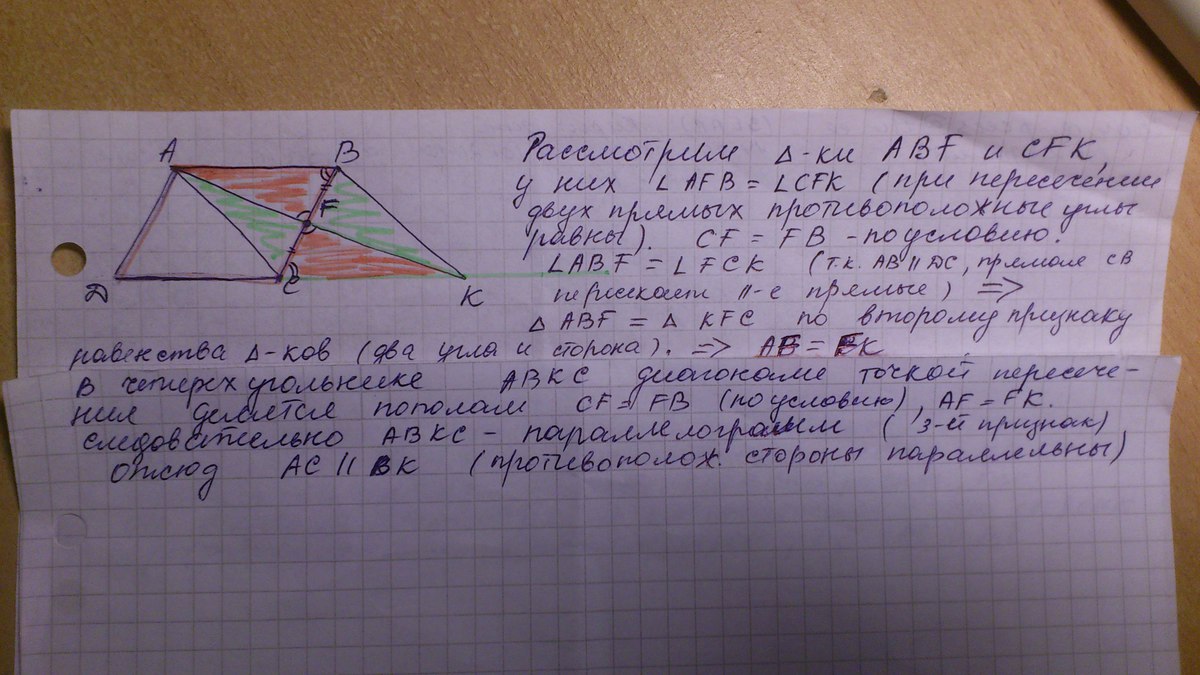 A B
F
Д C K
Рассмотрим Δ-ки ABF и CFK,
у них ∠AFB = ∠CFK (при пересечении
двух прямых противоположные углы
равны). CF = FB - по условию.
∠ABF = ∠FCK (т.к. AB || DC, прямая CB
пересекает ||-е прямые) =>
Δ ABF = Δ KFC по второму признаку
равенства Δ-ков (два угла и сторона). => AF = FK
В четырехугольнике ABKC диагонали точкой пересече-
ния делятся пополам CF = FB (по условию), AF = FK.
следовательно ABKC - параллелограмм (3-й признак)
Отсюд AC || BK (противополож. стороны параллельны)